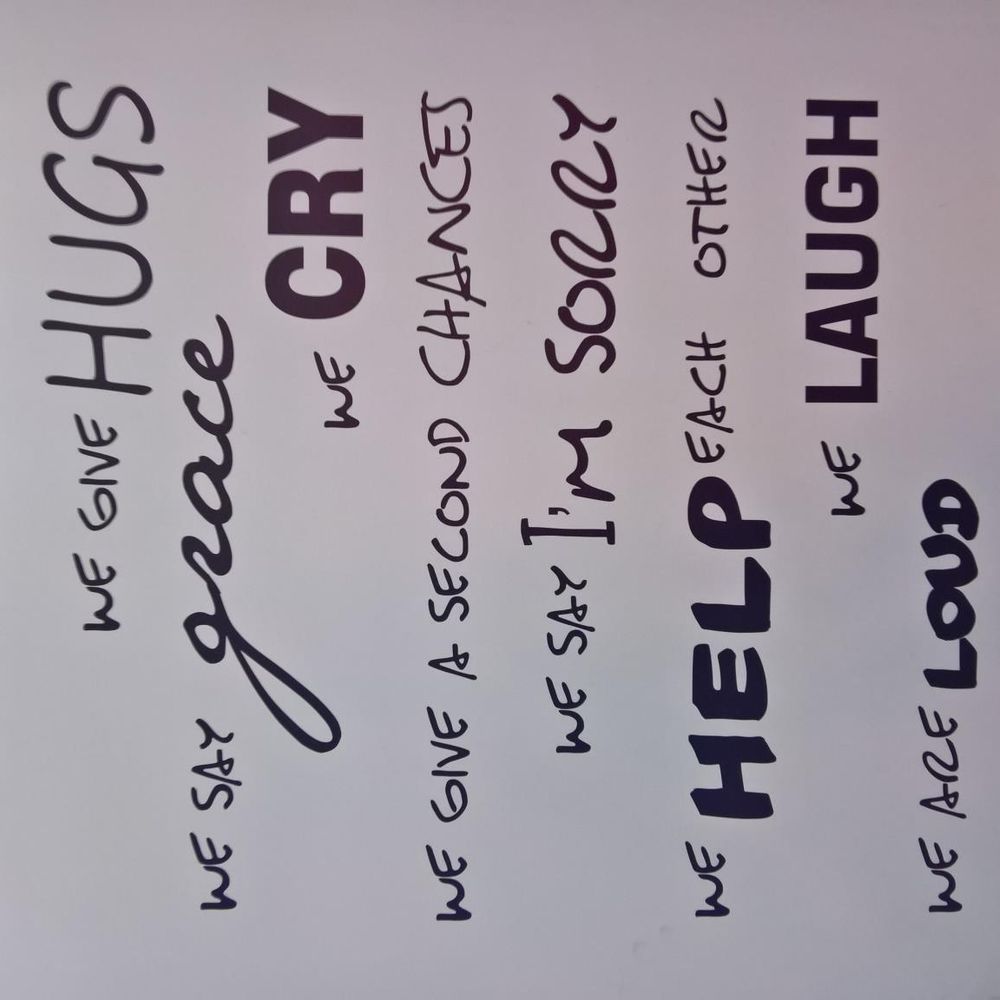 WE GIVE HUGS
WE SAY grace
WE CRY
WE GIVE A SECOND CHANCES
WE SAY I'm SORRY
WE HELP EACH OTHER
WE LAUGH
WE ARE LOUD